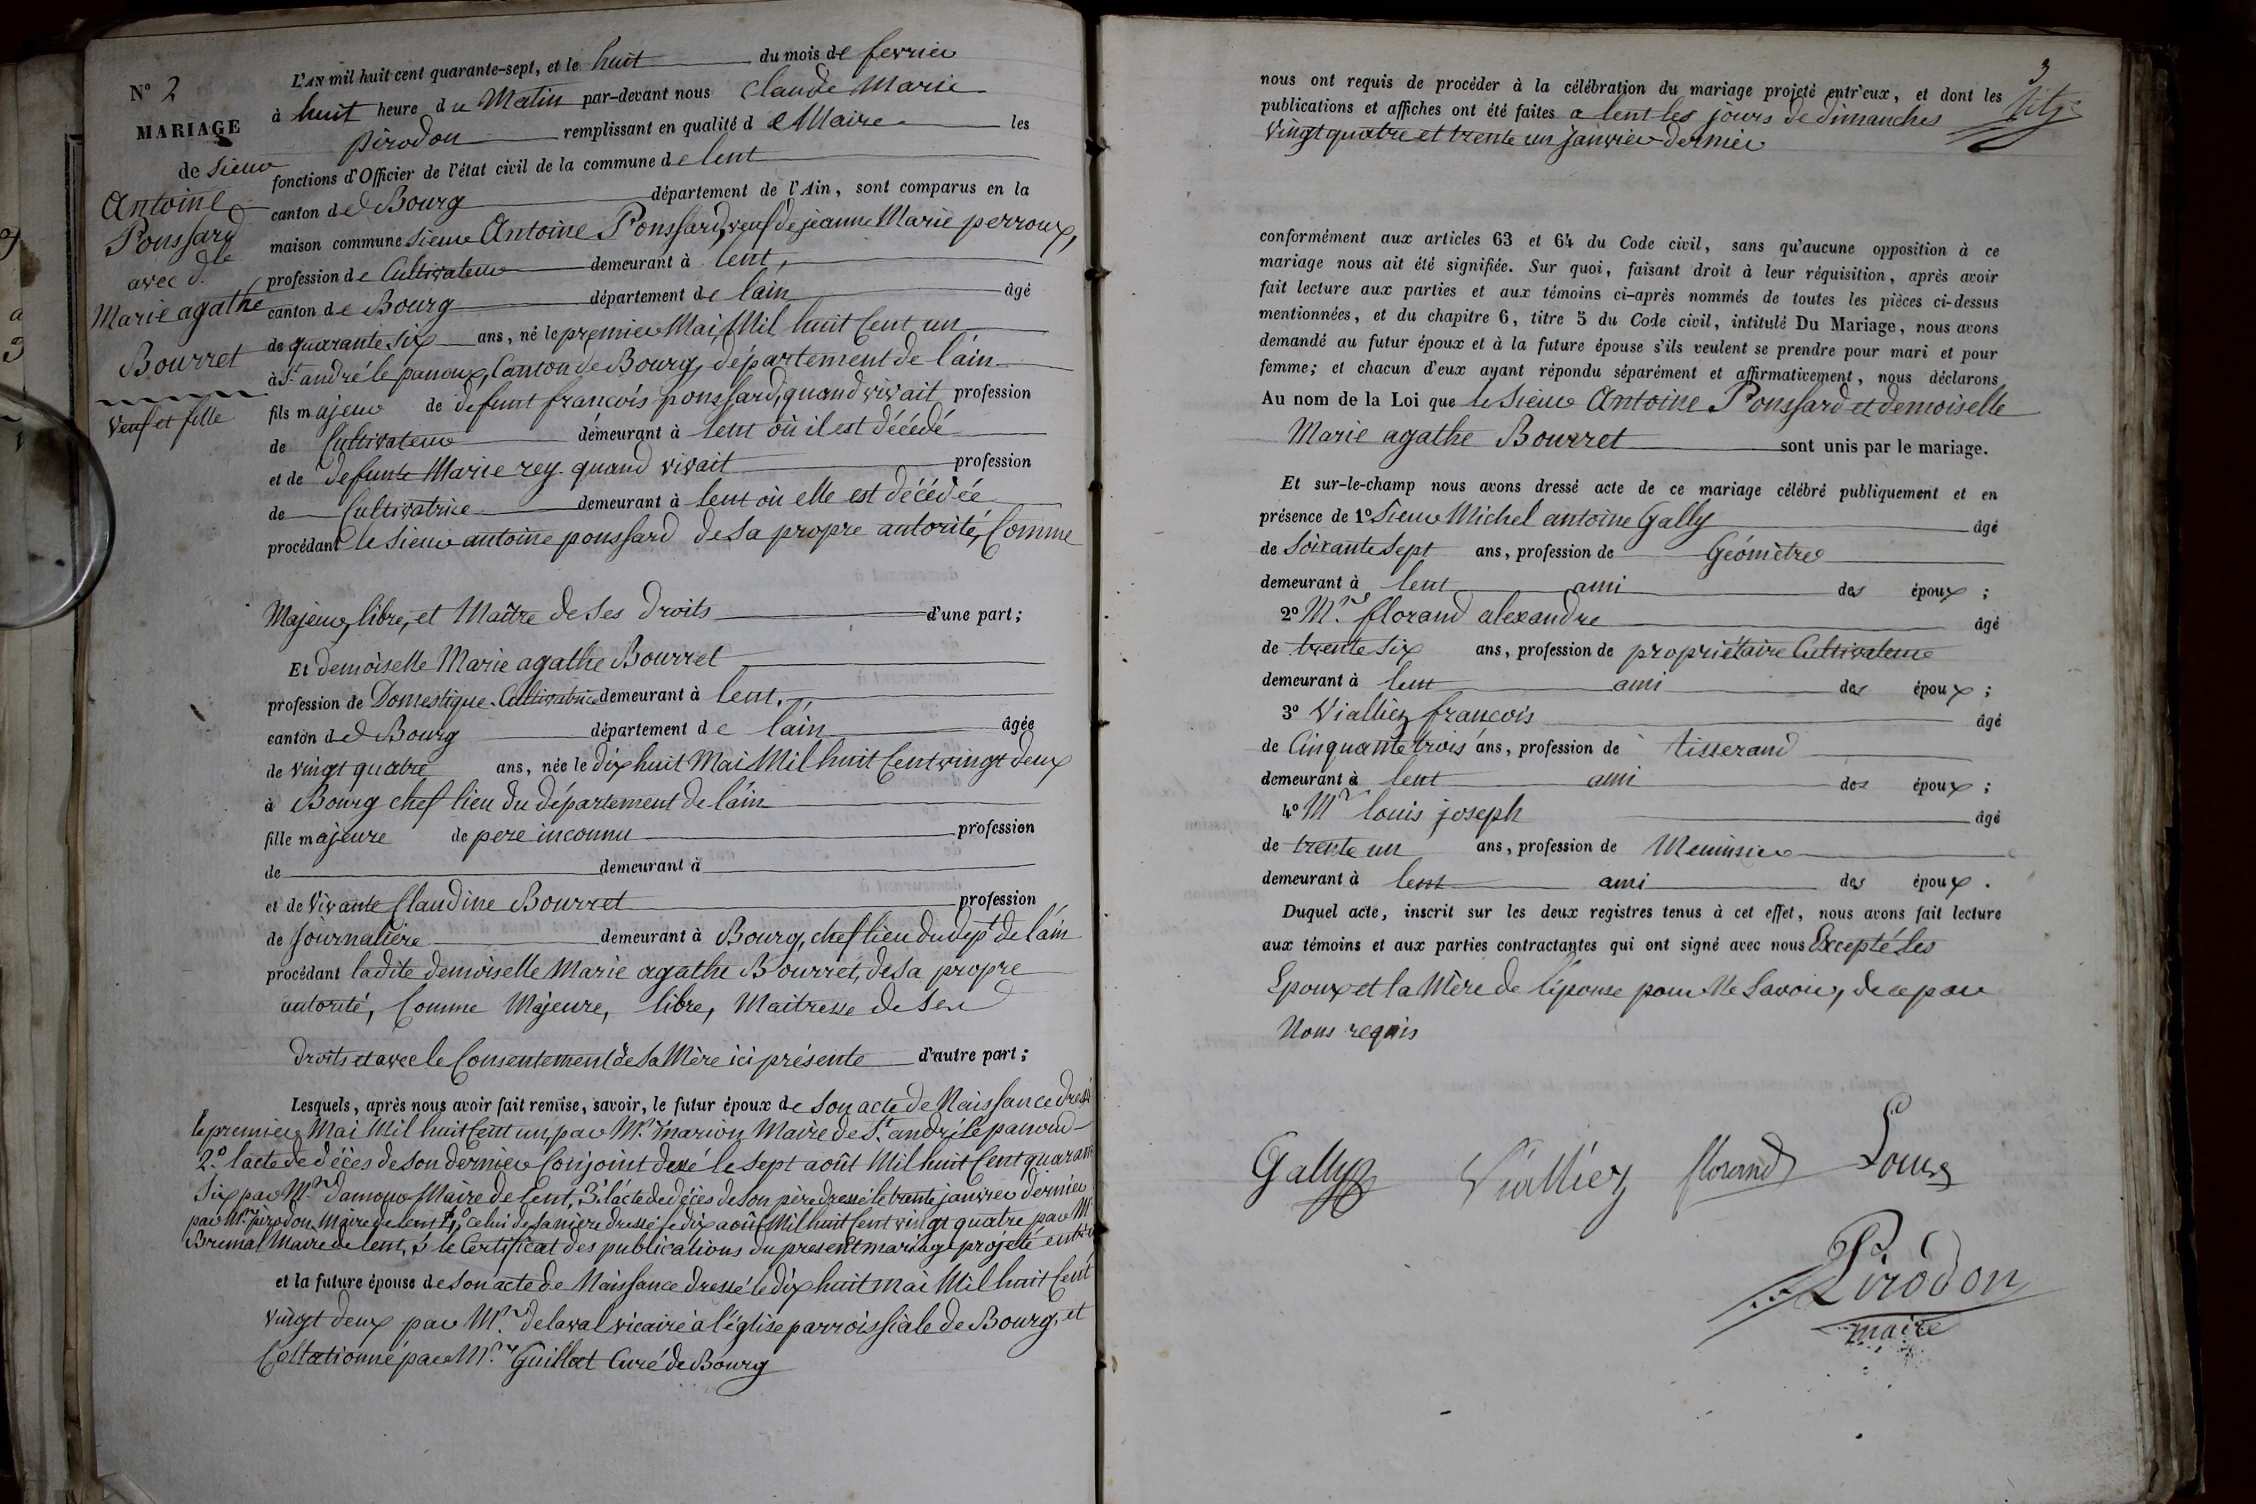 N° 2
MARIAGE
de Sieur
Antoine
Ponssard
avec dlle
Marie agathe
Bourret
Veuf et fille
L'AN mil huit cent quarante-sept, et le huit du mois de fevrier
à huit heure du Matin par-devant nous Claude Marie
Pirodon remplissant en qualité de Maire les
fonctions d'Officier de l'état civil de la commune de lent
canton de Bourg département de l'Ain, sont comparus en la
maison commune Sieur Antoine Ponssard, veuf de jeanne Marie perroux,
profession de Cultivateur demeurant à lent,
canton de Bourg département de lain âgé
de quarante six ans, né le premier Mai Mil huit Cent un
à St andré le panoux, Canton de Bourg, département de l'ain
fils majeur de defunt francois ponssard, quand vivait profession
de Cultivateur demeurant à lent où il est décédé
et de defunte Marie rey quand vivait profession
de Cultivatrice demeurant à lent où elle est décédée
procédant le Sieur antoine ponssard de sa propre autorité, Comme
Majeur, libre, et Maître de Ses droits d'une part;
Et demoiselle Marie agathe Bourret
profession de Domestique Cultivatrice demeurant à lent,
canton de Bourg département de l'ain âgée
de vingt quatre ans, née le dix huit Mai Mil huit Cent vingt deux
à Bourg chef lieu du département de l'ain
fille majeure de pere inconnu profession
de demeurant à
et de Vivante Claudine Bourret profession
de Journalière demeurant à Bourg, chef lieu du dept de l'ain
procédant ladite demoiselle Marie agathe Bourret, de sa propre
autorité, Comme Majeure, libre, Maitresse de Ses
droits et avec le Consentement de Sa Mère ici présente d'autre part;
Lesquels, après nous avoir fait remise, savoir, le futur époux de son acte de Naissance dressé
le premier Mai Mil huit Cent un, par Mr. marion Maire de St. andré le panoud
2.° l'acte de décès de son dernier Conjoint dressé le sept août Mil huit Cent quarante
Six par Mr. damour Maire de lent, 3.° l'acte de décès de son père dressé le trente janvier dernier
par Mr. pirodon Maire de lent 4.° celui de sa mère dressé le dix août Mil huit Cent vingt quatre par Mr
Maire de lent, 5 le Certificat des publications du present mariage projeté
et la future épouse de son acte de Naissance dressé le dix huit mai Mil huit Cent
vingt deux par Mr. delaval vicaire à l'église parroissiale de Bourg, et
Collationné par Mr. Guillot Curé de Bourg
3
nous ont requis de procéder à la célébration du mariage projeté entr'eux, et dont les
publications et affiches ont été faites a lent les jours de dimanches
Vingt quatre et trente un Janvier dernier
conformément aux articles 63 et 64 du Code civil, sans qu'aucune opposition à ce
mariage nous ait été signifiée. Sur quoi, faisant droit à leur réquisition, après avoir
fait lecture aux parties et aux témoins ci-après nommés de toutes les pièces ci-dessus
mentionnées, et du chapitre 6, titre 5 du Code civil, intitulé Du Mariage, nous avons
demandé au futur époux et à la future épouse s'ils veulent se prendre pour mari et pour
femme; et chacun d'eux ayant répondu séparément et affirmativement, nous déclarons
Au nom de la Loi que le Sieur Antoine Ponssard et demoiselle
Marie agathe Bourret sont unis par le mariage.
Et sur-le-champ nous avons dressé acte de ce mariage célébré publiquement et en
présence de 1° Sieur Michel antoine Gally âgé
de Soixante sept ans, profession de Géomètre
demeurant à lent ami des époux ;
2° Mr. florand alexandre âgé
de trente six ans, profession de propriétaire Cultivateur
demeurant à lent ami des époux ;
3° Viallier francois âgé
de Cinquante trois ans, profession de tisserand
demeurant à lent ami des époux ;
4° Mr louis joseph âgé
de trente un ans, profession de Menuisier
demeurant à lent ami des époux .
Duquel acte, inscrit sur les deux registres tenus à cet effet, nous avons fait lecture
aux témoins et aux parties contractantes qui ont signé avec nous Excepté les
Epoux et la Mère de l'épouse pour Ne Savoir, de ce par
Nous requis
Gally Viallier florand Louis
Pirodon
maire